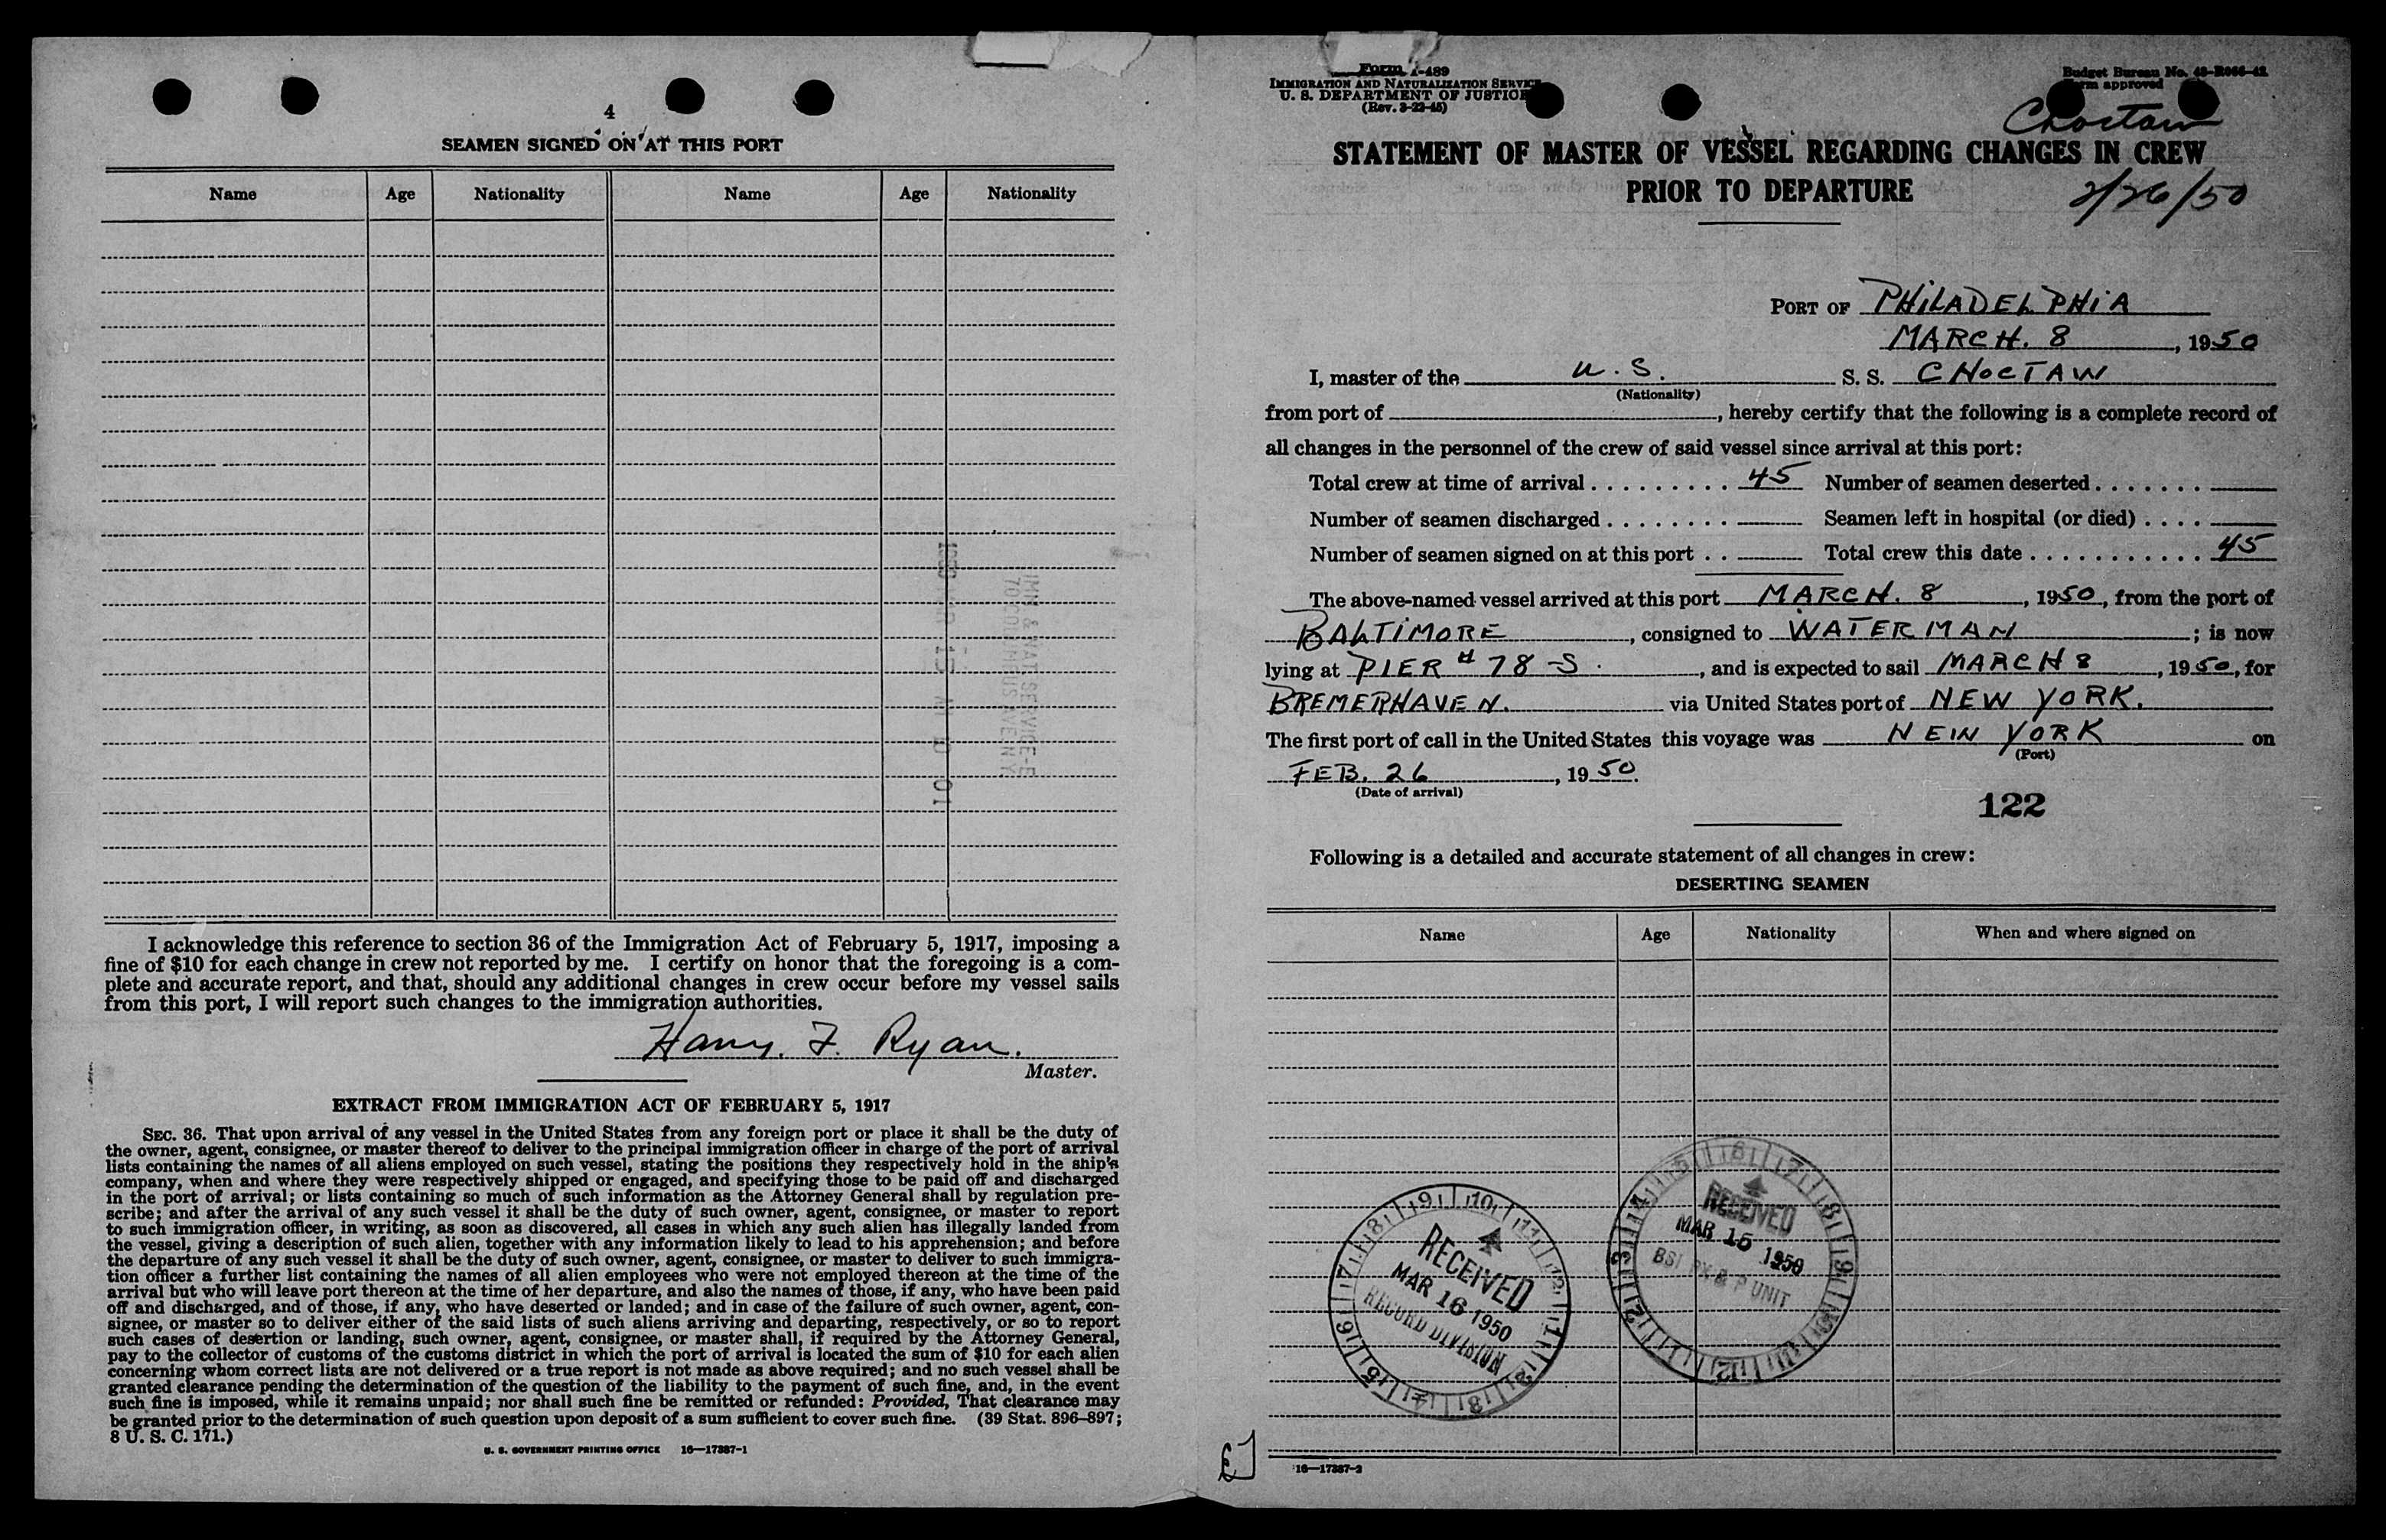 4
SEAMEN SIGNED ON AT THIS PORT
Name Age Nationality Name Age Nationality
I acknowledge this reference to section 36 of the Immigration Act of February 5, 1917, imposing a
fine of $10 for each change in crew not reported by me. I certify on honor that the foregoing is a com-
plete and accurate report, and that, should any additional changes in crew occur before my vessel sails
from this port, I will report such changes to the immigration authorities.
Harry. F. Ryan.
Master.
EXTRACT FROM IMMIGRATION ACT OF FEBRUARY 5, 1917
SEC. 36. That upon arrival of any vessel in the United States from any foreign port or place it shall be the duty of
the owner, agent, consignee, or master thereof to deliver to the principal immigration officer in charge of the port of arrival
lists containing the names of all aliens employed on such vessel, stating the positions they respectively hold in the ship's
company, when and where they were respectively shipped or engaged, and specifying those to be paid off and discharged
in the port of arrival; or lists containing so much of such information as the Attorney General shall by regulation pre-
scribe; and after the arrival of any such vessel it shall be the duty of such owner, agent, consignee, or master to report
to such immigration officer, in writing, as soon as discovered, all cases in which any such alien has illegally landed from
the vessel, giving a description of such alien, together with any information likely to lead to his apprehension; and before
the departure of any such vessel it shall be the duty of such owner, agent, consignee, or master to deliver to such immigra-
tion officer a further list containing the names of all alien employees who were not employed thereon at the time of the
arrival but who will leave port thereon at the time of her departure, and also the names of those, if any, who have been paid
off and discharged, and of those, if any, who have deserted or landed; and in case of the failure of such owner, agent, con-
signee, or master so to deliver either of the said lists of such aliens arriving and departing, respectively, or so to report
such cases of desertion or landing, such owner, agent, consignee, or master shall, if required by the Attorney General,
pay to the collector of customs of the customs district in which the port of arrival is located the sum of $10 for each alien
concerning whom correct lists are not delivered or a true report is not made as above required; and no such vessel shall be
granted clearance pending the determination of the question of the liability to the payment of such fine, and, in the event
such fine is imposed, while it remains unpaid; nor shall such fine be remitted or refunded: Provided, That clearance may
be granted prior to the determination of such question upon deposit of a sum sufficient to cover such fine. (39 Stat. 896–897;
8 U. S. C. 171.)
U. S. GOVERNMENT PRINTING OFFICE 16—17387-1
Form I-489
IMMIGRATION AND NATURALIZATION SERVICE
U. S. DEPARTMENT OF JUSTICE
(Rev. 3-22-45)
Budget Bureau No.
approved
Choctaw
STATEMENT OF MASTER OF VESSEL REGARDING CHANGES IN CREW
PRIOR TO DEPARTURE
2/26/50
PORT OF PHILADELPHIA
MARCH. 8, 1950
I, master of the U. S. S. S. CHOCTAW
(Nationality)
from port of , hereby certify that the following is a complete record of
all changes in the personnel of the crew of said vessel since arrival at this port:
Total crew at time of arrival . . . . . . . . . 45 Number of seamen deserted . . . . . . .
Number of seamen discharged . . . . . . . . Seamen left in hospital (or died) . . . .
Number of seamen signed on at this port . . Total crew this date . . . . . . . . . . . 45
The above-named vessel arrived at this port MARCH. 8, 1950, from the port of
BALTIMORE, consigned to WATERMAN; is now
lying at PIER # 78-S., and is expected to sail MARCH 8, 1950, for
BREMERHAVEN. via United States port of NEW YORK.
The first port of call in the United States this voyage was NEW YORK on
(Port)
FEB. 26, 1950.
(Date of arrival)
122
Following is a detailed and accurate statement of all changes in crew:
DESERTING SEAMEN
Name Age Nationality When and where signed on
RECEIVED
MAR 16 1950
RECORD DIVISION
RECEIVED
MAR 15 1950
BSI EX & P UNIT
16—17387-2